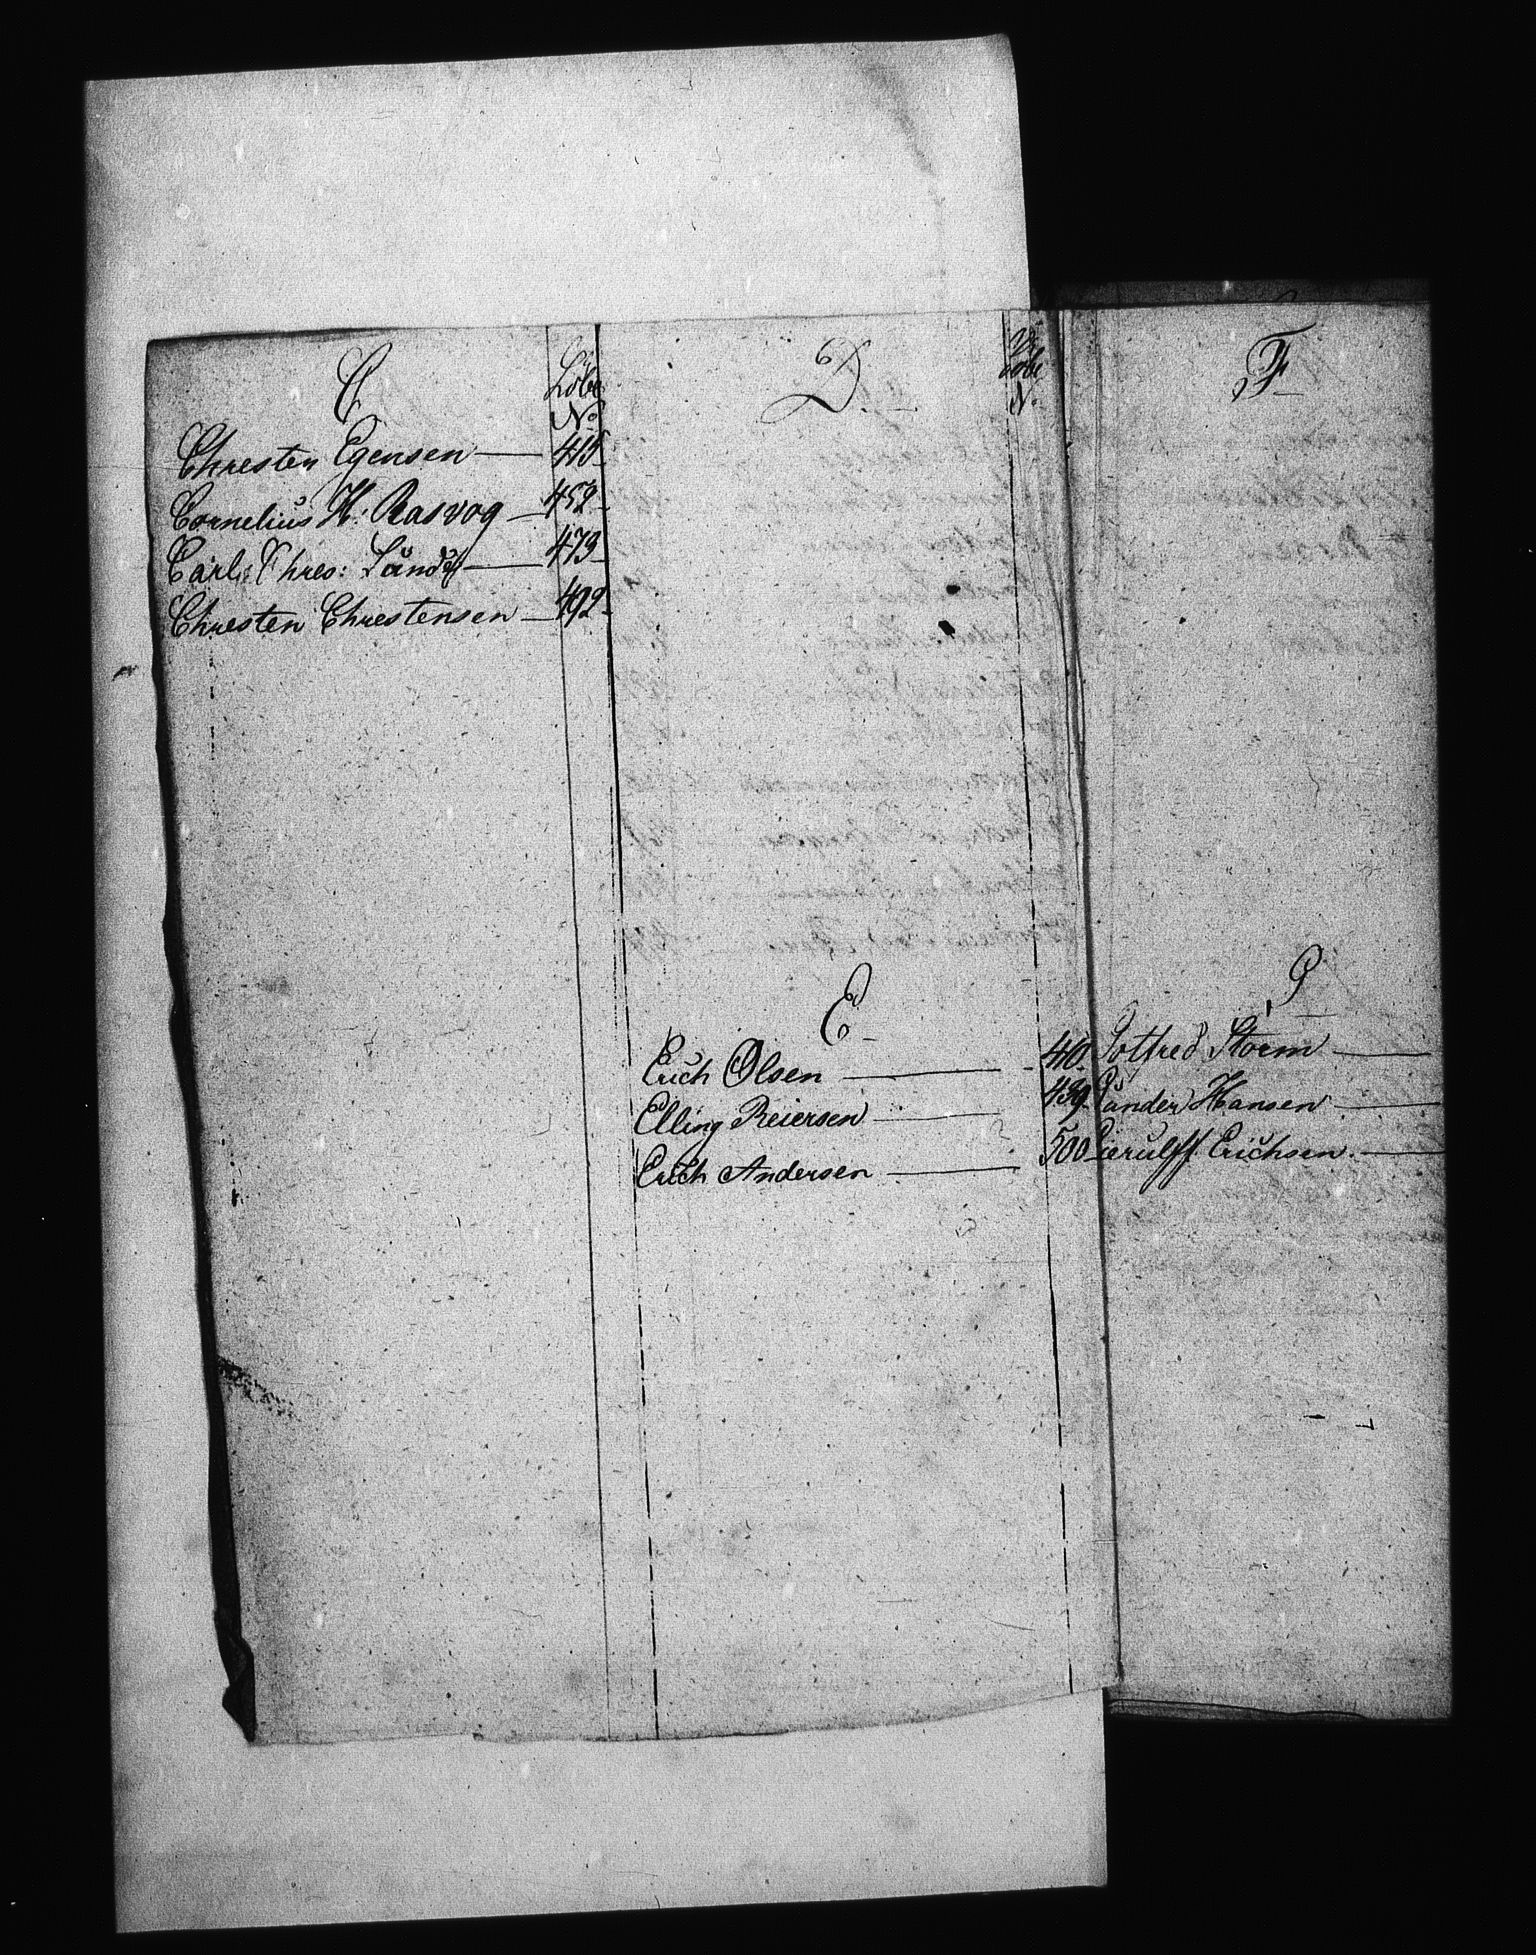 C
Löbe
No
Chresten Egensen — 415
Cornelius H: Rasvog — 452
Carl Chres: Lund — 473
Chresten Chrestensen — 492
D.
Löbe
N.
E
Erich Olsen — 40
Elling Reiersen — 439
Erich Andersen — 500
F
G
Gotfred Storm —
Gunder Hansen —
Gierulff Erichsen. —